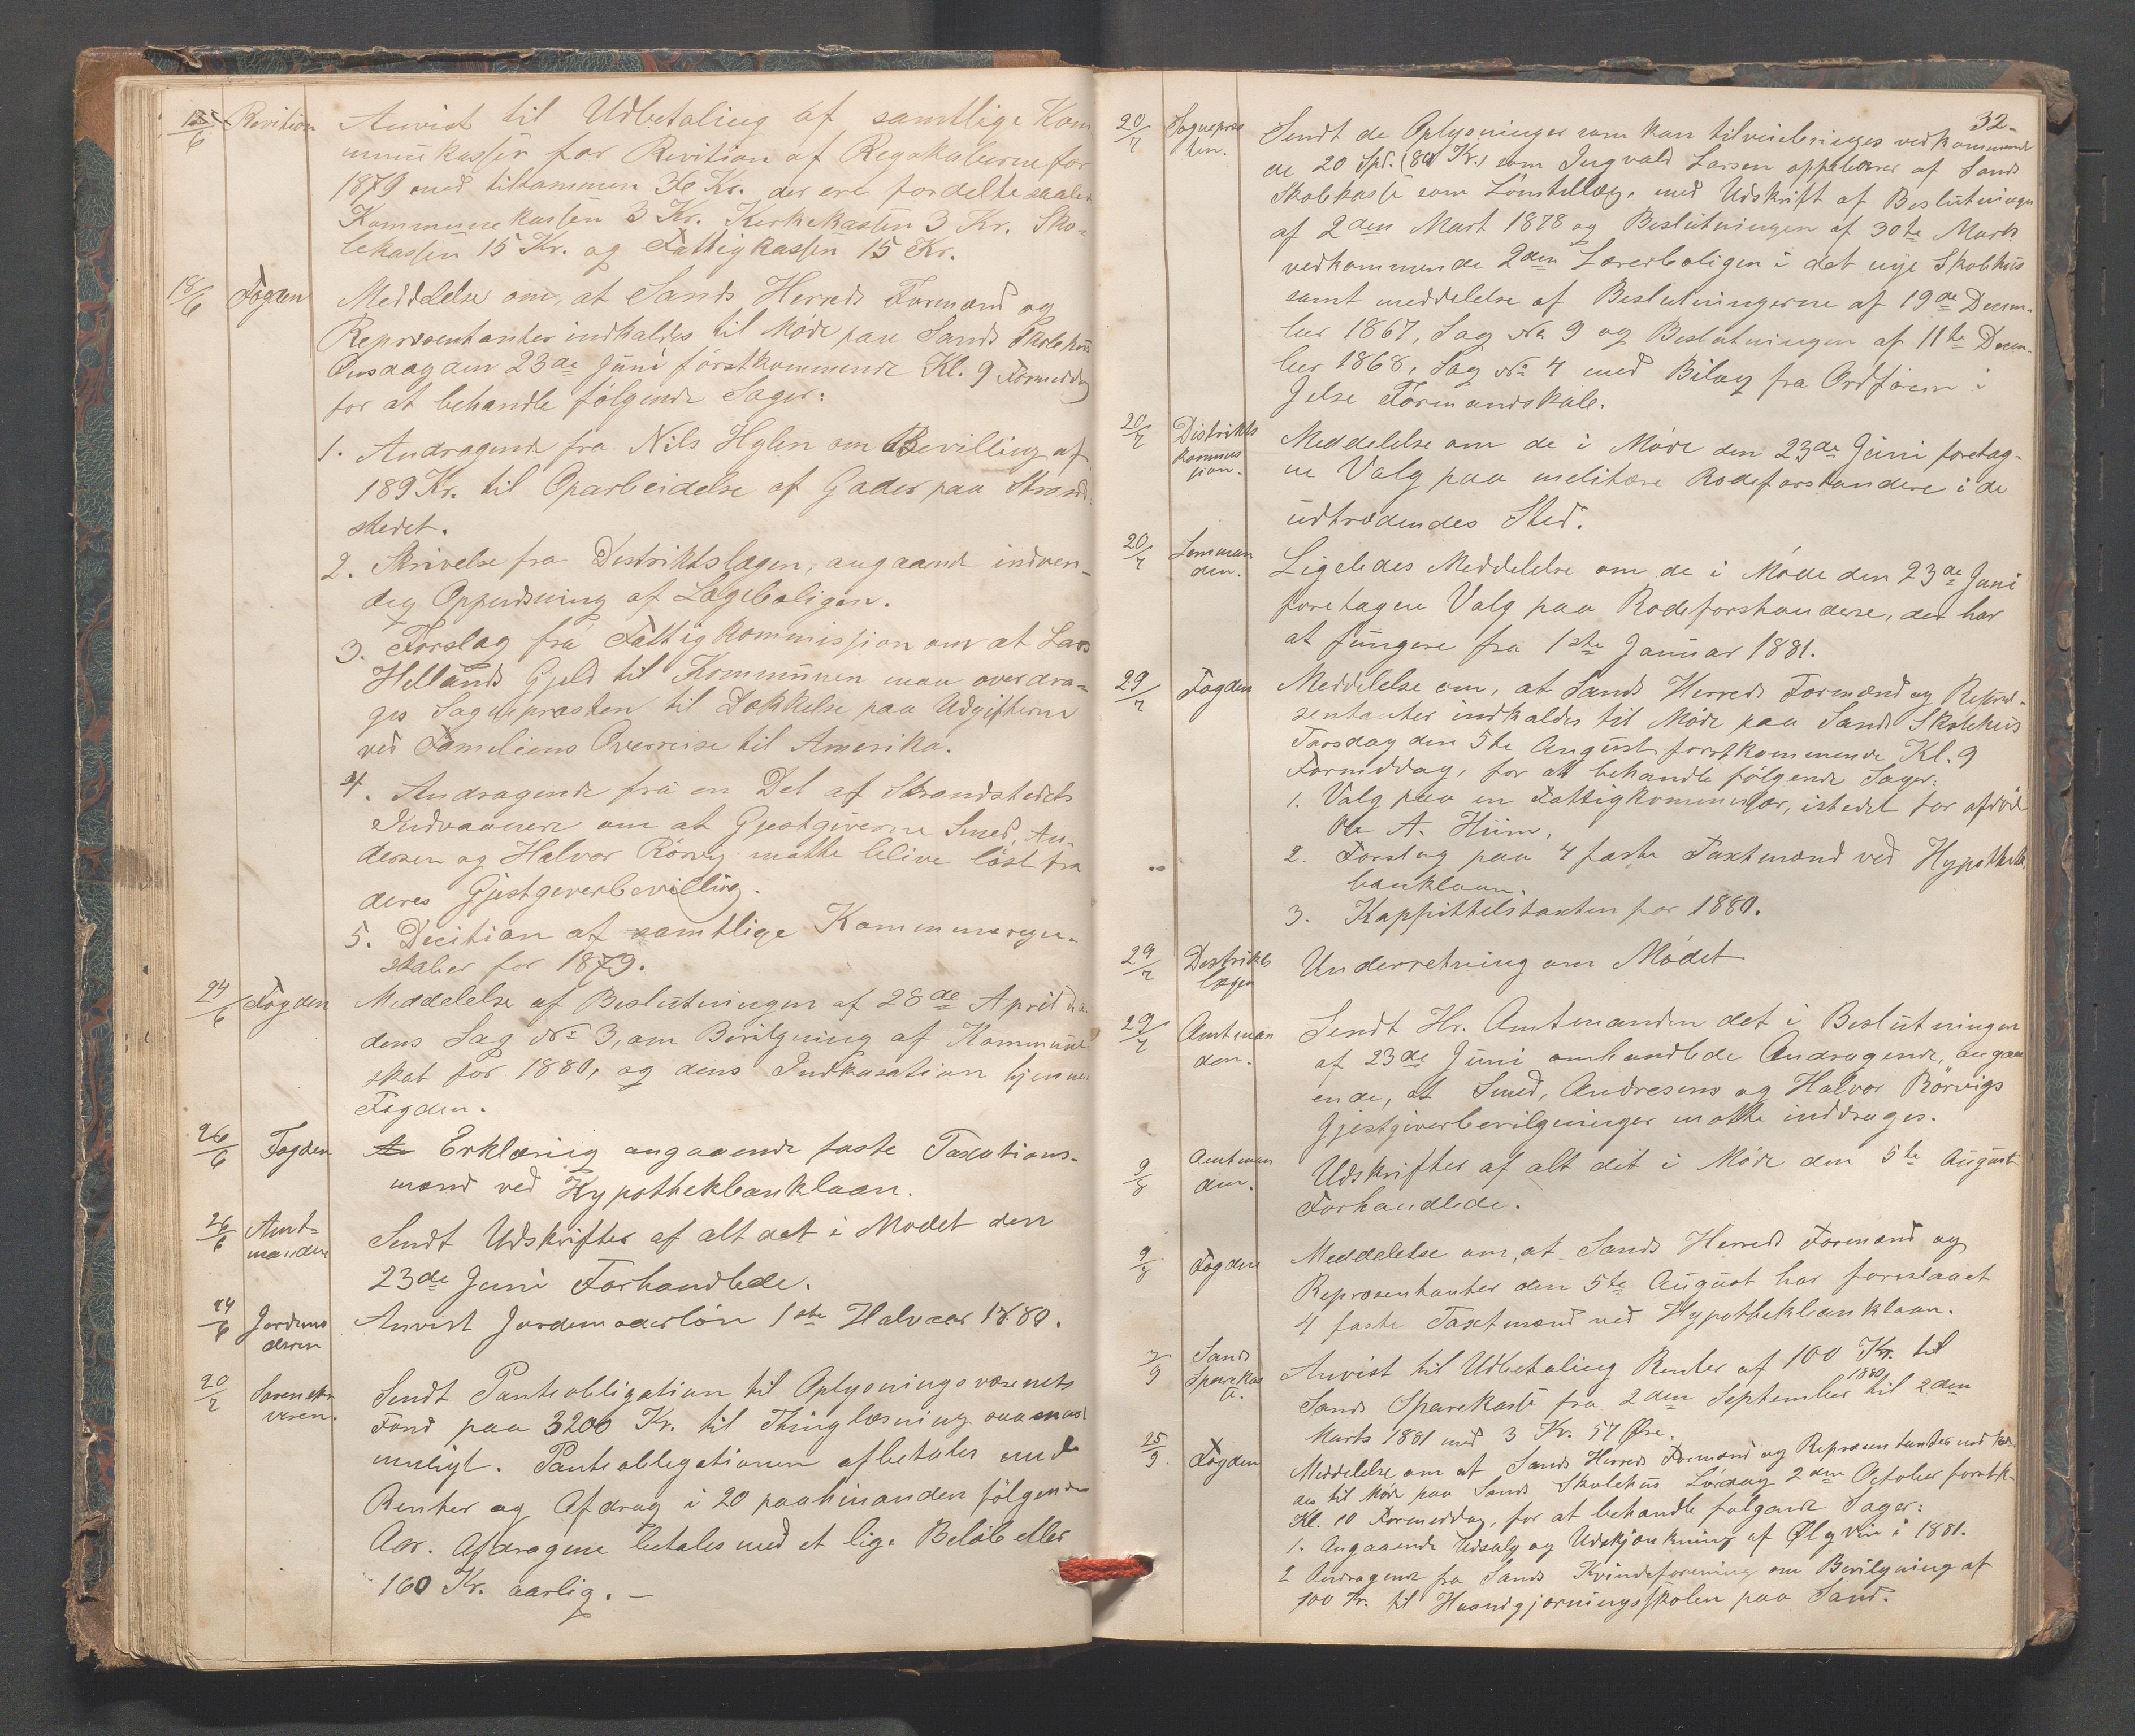 18/6 Revition Anvist til Udbetaling af samtlige Kom
munekasser for Revition af Regnskaberne for
1879 med tilsammen 36 Kr. der ere fordelte saaled
Kommunekassen 3 Kr. Kirkekassen 3 Kr. Sko-
lekassen 15 Kr. og Fattigkassen 15 Kr.
18/6 Fogden Meddelelse om, at Sands Herreds Formænd og
Repræsentanter indkaldes til Møde paa Sands Skolehus
Onsdag den 23de Juni førstkommende Kl. 9 Formiddag
for at behandle følgende Sager:
1. Andragende fra Nils Hylen om Bevilling af
189 Kr. til Oparbeidelse af Gader paa Strand
stedet.
2. Skrivelse fra Destriktslægen, angaaende indven-
dig Oppudsning af Lægeboligen.
3. Forslag fra Fattigkommissjion om at Lars
Hellands Gjeld til Kommunen maa overdra-
ges Sognepræsten til Dækkelse paa Udgifterne
ved Familiens Overreise til Amerika.
4. Andragende fra en Del af Strandstedets
Indvaanere om at Gjestgiverne Smed, An-
dersen og Halvor Rörvig maatte blive löst fra
deres Gjestgeverbevilling.
5. Decition af samtlige Kommuneregn-
skaber for 1879.
24/6 Fogden Meddelelse af Beslutningen af 28de April
dens Sag No 3, om Bevilgning af Kommune
skat for 1880, og dens Indkasation hjennem
Fogden.
26/6 Fogden Erklæring angaaende faste Taxations-
mænd ved Hypothekbanklaan.
26/6 Amt-
manden Sendt Udskrifter af alt det i Mødet den
23de Juni Forhandlede.
24/6 Jordmo
deren Anvist Jordemoderlön 1ste Halvaar 1880.
20/7 Sorenskri
veren. Sendt Panteobligation til Oplysningsvæsenets
Fond paa 3200 Kr. til Thinglæsning saa snart
muligt. Panteobligationen afbetales med
Renter og Afdrag i 20 paahinanden følgende
Aar. Afdragene betales med et lige Beløb eller
160 Kr. aarlig. —
32-
20/7 Sognepræs
ten. Sendt de Oplysninger som kan tilveiebringes vedkommend
de 20 Spd. (80 Kr.) som Ingvald Larsen oppebærer af Sands
Skolekasse som Lönstillæg, med Udskrift af Beslutningen
af 2den Mart 1878 og Beslutningen af 30te Marts
vedkommende 2den Lærerboligen i det nye Skolehus
samt meddelelse af Beslutningerne af 19de Decem-
ber 1867, Sag No 9 og Beslutningen af 11te Decem-
ber 1868, Sag No 4 med Bilag fra Ordføren i
Jelse Formandskab.
20/7 Distrikts
kommis
jion. Meddelelse om de i Møde den 23de Juni foretag-
ne Valg paa melitære Rodeforstandere i de
udtrædendes Sted.
20/7 Lensman
den. Ligeledes Meddelelse om de i Møde den 23de Juni
foretagen Valg paa Rodeforstandere, der har
at fungere fra 1ste Januar 1881.
29/7 Fogden Meddelelse om, at Sands Herreds Formænd og Repræ-
sentanter indkaldes til Møde paa Sands Skolehus
Torsdag den 5te August førstkommende Kl. 9
Formiddag, for at behandle følgende Sager:
1. Valg paa en Fattigkommisær, istedet for afdød
Ole A. Hiim.
2. Forslag paa 4 faste Taxtmænd ved Hypothek
banklaan.
3. Kappittelstaxten for 1880.
29/7 Destrikts
lægen Underretning om Mödet
29/7 Amtman
den. Sendt Hr. Amtmanden det i Beslutningen
af 23de Juni omhandlede Andragende, angaa
ende, at Smed, Andresens og Halvor Rörvigs
Gjestgiverbevilgninger motte inddrages.
9/8 Amtman
den. Udskrifter af alt det i Møde den 5te August
Forhandlede.
9/8 Fogden Meddelelse om, at Sands Herreds Formænd og
Repræsentanter den 5te August har foreslaaet
4 faste Taxtmænd ved Hypothekbanklaan.
3/9 Sands
Sparekas
se. Anvist til Udbetaling Renter af 100 Kr. til
Sands Sparekasse fra 2den September 1880 til 2den
Marts 1881 med 3 Kr. 57 Øre.
25/9 Fogden Meddelelse om at Sands Herreds Formænd og Repræsentanter
des til Møde paa Sands Skolehus Lördag 2den October førstk-
Kl. 10 Formiddag, for at behandle følgende Sager:
1. Angaaende Udsalg og Udskjænkning af Øl og Vin i 1881.
2 Andragende fra Sands Kvindeforening om Bevilgning af
100 Kr. til Haandgjerningsskolen paa Sand.